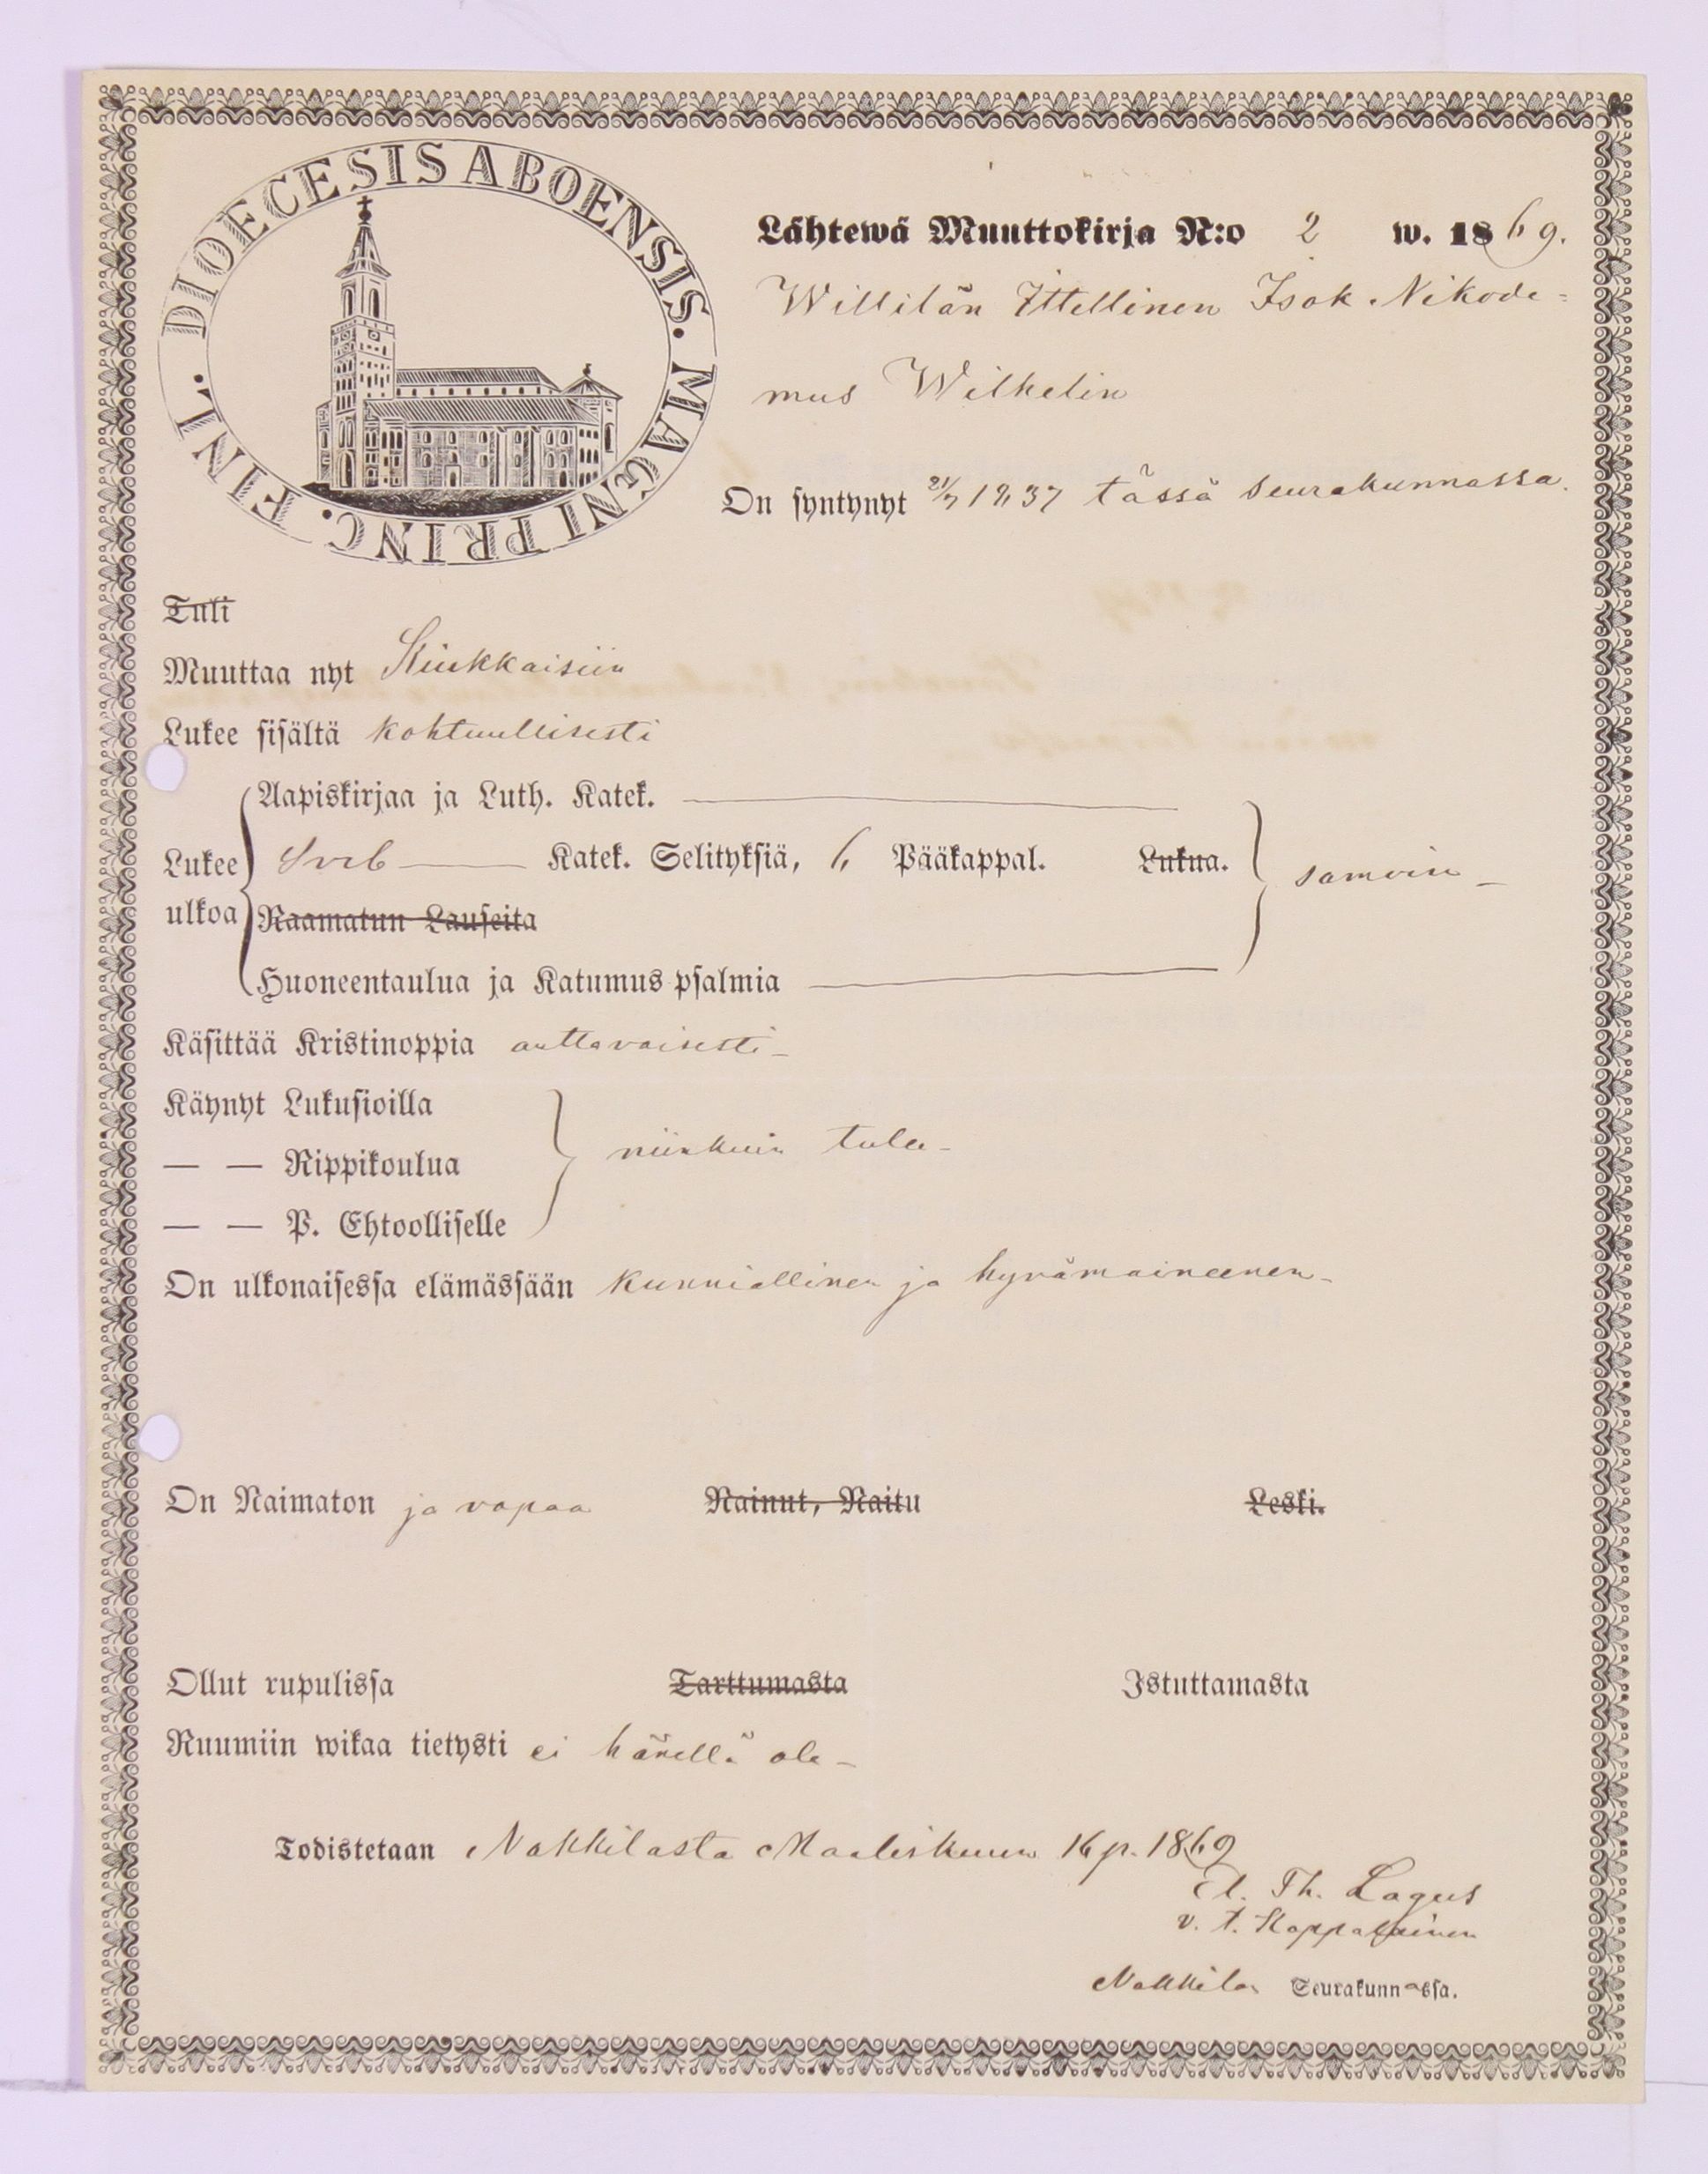 DIOECESIS ABOENSIS. MAGNI PRINC. FINL.
Lähtewä Muuttokirja N:o 2 w. 1869.
Willilän Itellinen Isak Nikode=
mus Wilhelin
On syntynyt 21/7 1837 tässä seurakunnassa.
Tuli
Muuttaa nyt Kiukkaisiin
Lukee sisältä kohtuullisesti
Aapiskirjaa ja Luth. Katek.
Lukee Sveb Katek. Selityksiä, 6 Pääkappal. Lukua. samoin
ulkoa Raamatun Lauseita
Huoneentaulua ja Katumus psalmia
Käsittää Kristinoppia auttavaisesti
Käynyt Lukusioilla
— — Rippikoulua niinkuin tulee
— — P. Ehtoolliselle
On ulkonaisessa elämässään kunniallinen ja hyvämaineenen
On Naimaton ja vapaa Nainut, Naitu Leski.
Ollut rupulissa Tarttumasta Istuttamasta
Ruumiin wikaa tietysti ei hänellä ole
Todistetaan Nakkilasta Maaliskuun 16 p. 1869
Th. Lagus
v. t. Kappalainen
Nakkilan Seurakunnassa.